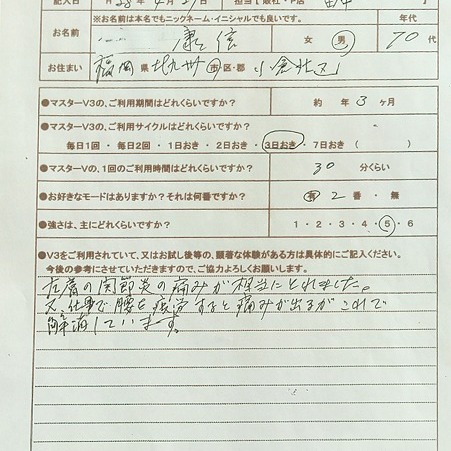 記入日 H 28年 4月 27日 担当【販社・P店
※お名前は本名でもニックネーム・イニシャルでも良いです。 年代
お名前 康信 女・男 70代
お住まい 福岡県 北九州市区・郡 小倉北区
●マスターV3の、ご利用期間はどれくらいですか? 約 年 3ヶ月
●マスターV3の、ご利用サイクルはどれくらいですか?
毎日1回・毎日2回・1日おき・2日おき・3日おき・7日おき( )
●マスターVの、1回のご利用時間はどれくらいですか? 30分くらい
●お好きなモードはありますか?それは何番ですか? 有 2番・無
●強さは、主にどれくらいですか? 1・2・3・4・5・6
●V3をご利用されていて、又はお試し後等の、顕著な体験がある方は具体的にご記入ください。
今後の参考にさせていただきますので、ご協力よろしくお願いします。
左肩の関節炎の痛みが相当にとれました。
又、仕事で腰を疲労すると痛みが出るがこれで
解消しています。